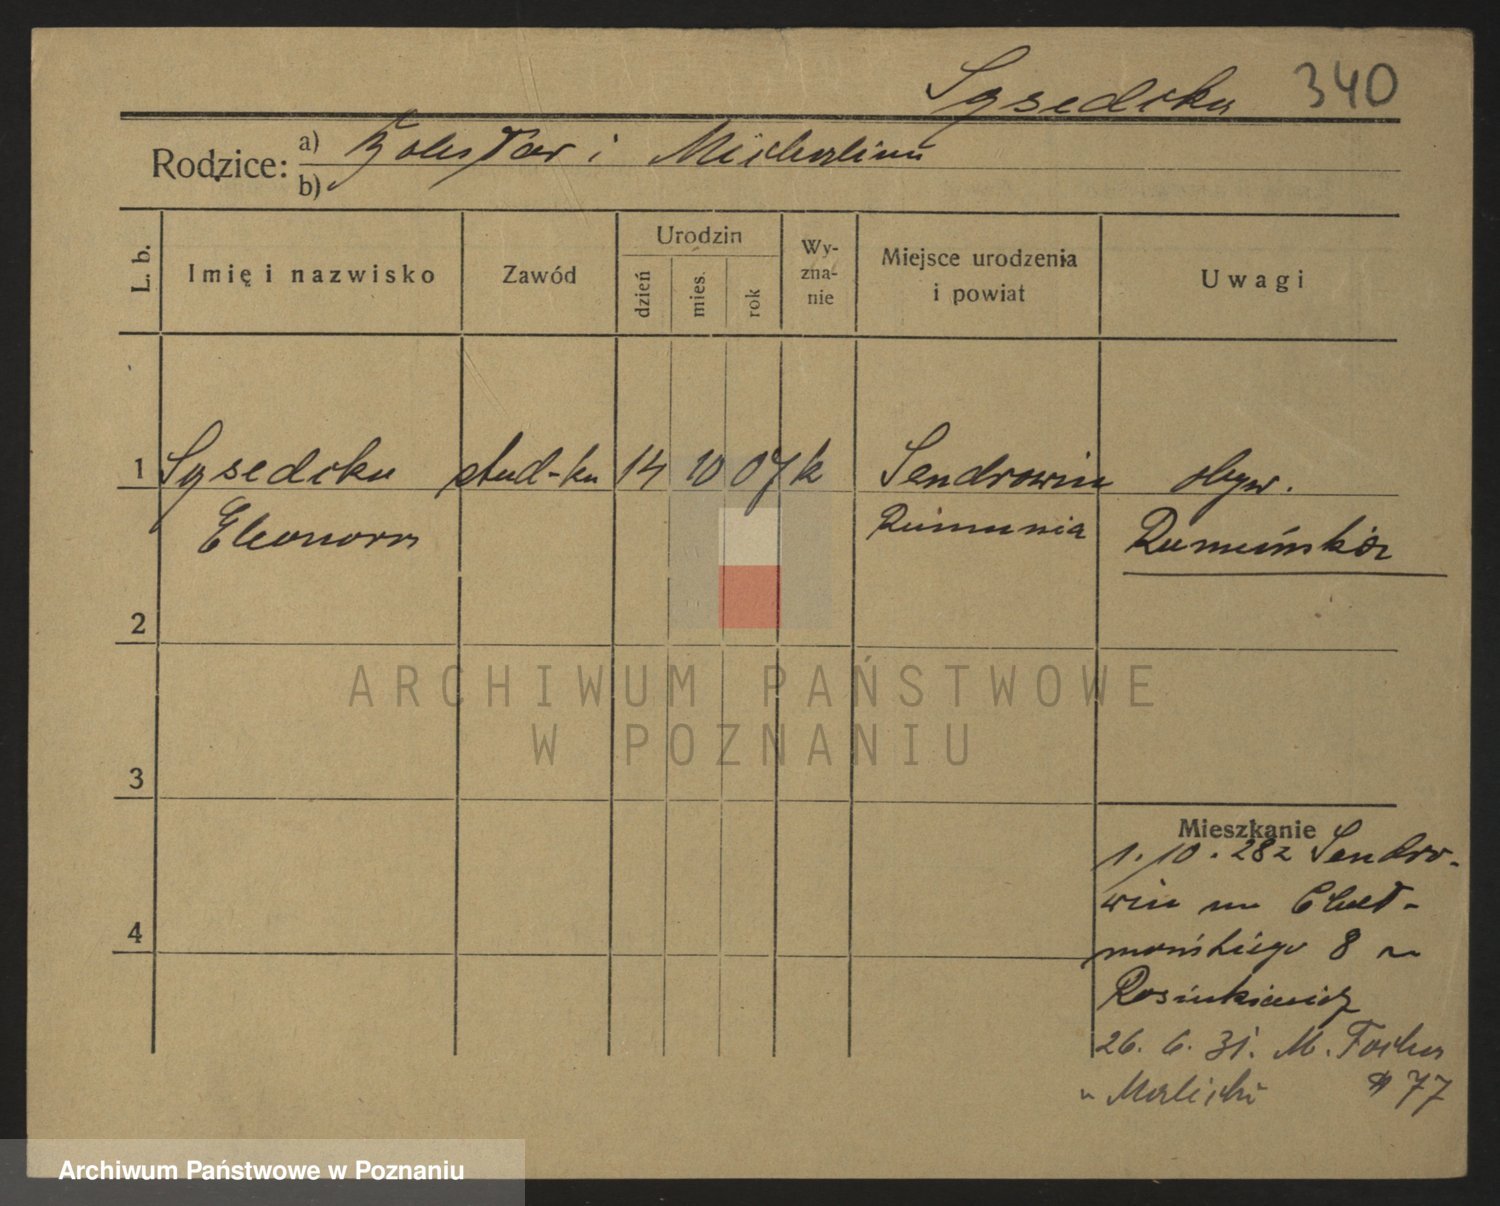 Sąsedcka 340
Rodzice: a) Gustaw i Michalina
b)
L. b. Imię i nazwisko Zawód Urodzin dzień mies. rok Wyznanie Miejsce urodzenia i powiat Uwagi
1 Sąsedcka stud-ka 14 10 07 k Sendrowiu obyw.
Eleonora Rumunia Rumuńska
2
ARCHIWUM PAŃSTWOWE
W POZNANIU
3
Mieszkanie
1. 10. 28 z Sendro-
4 wiu na Cheł-
mońskiego 8 u
Rosinkiewicz
26. 6. 31. M. Focha
u Malicki 77
Archiwum Państwowe w Poznaniu